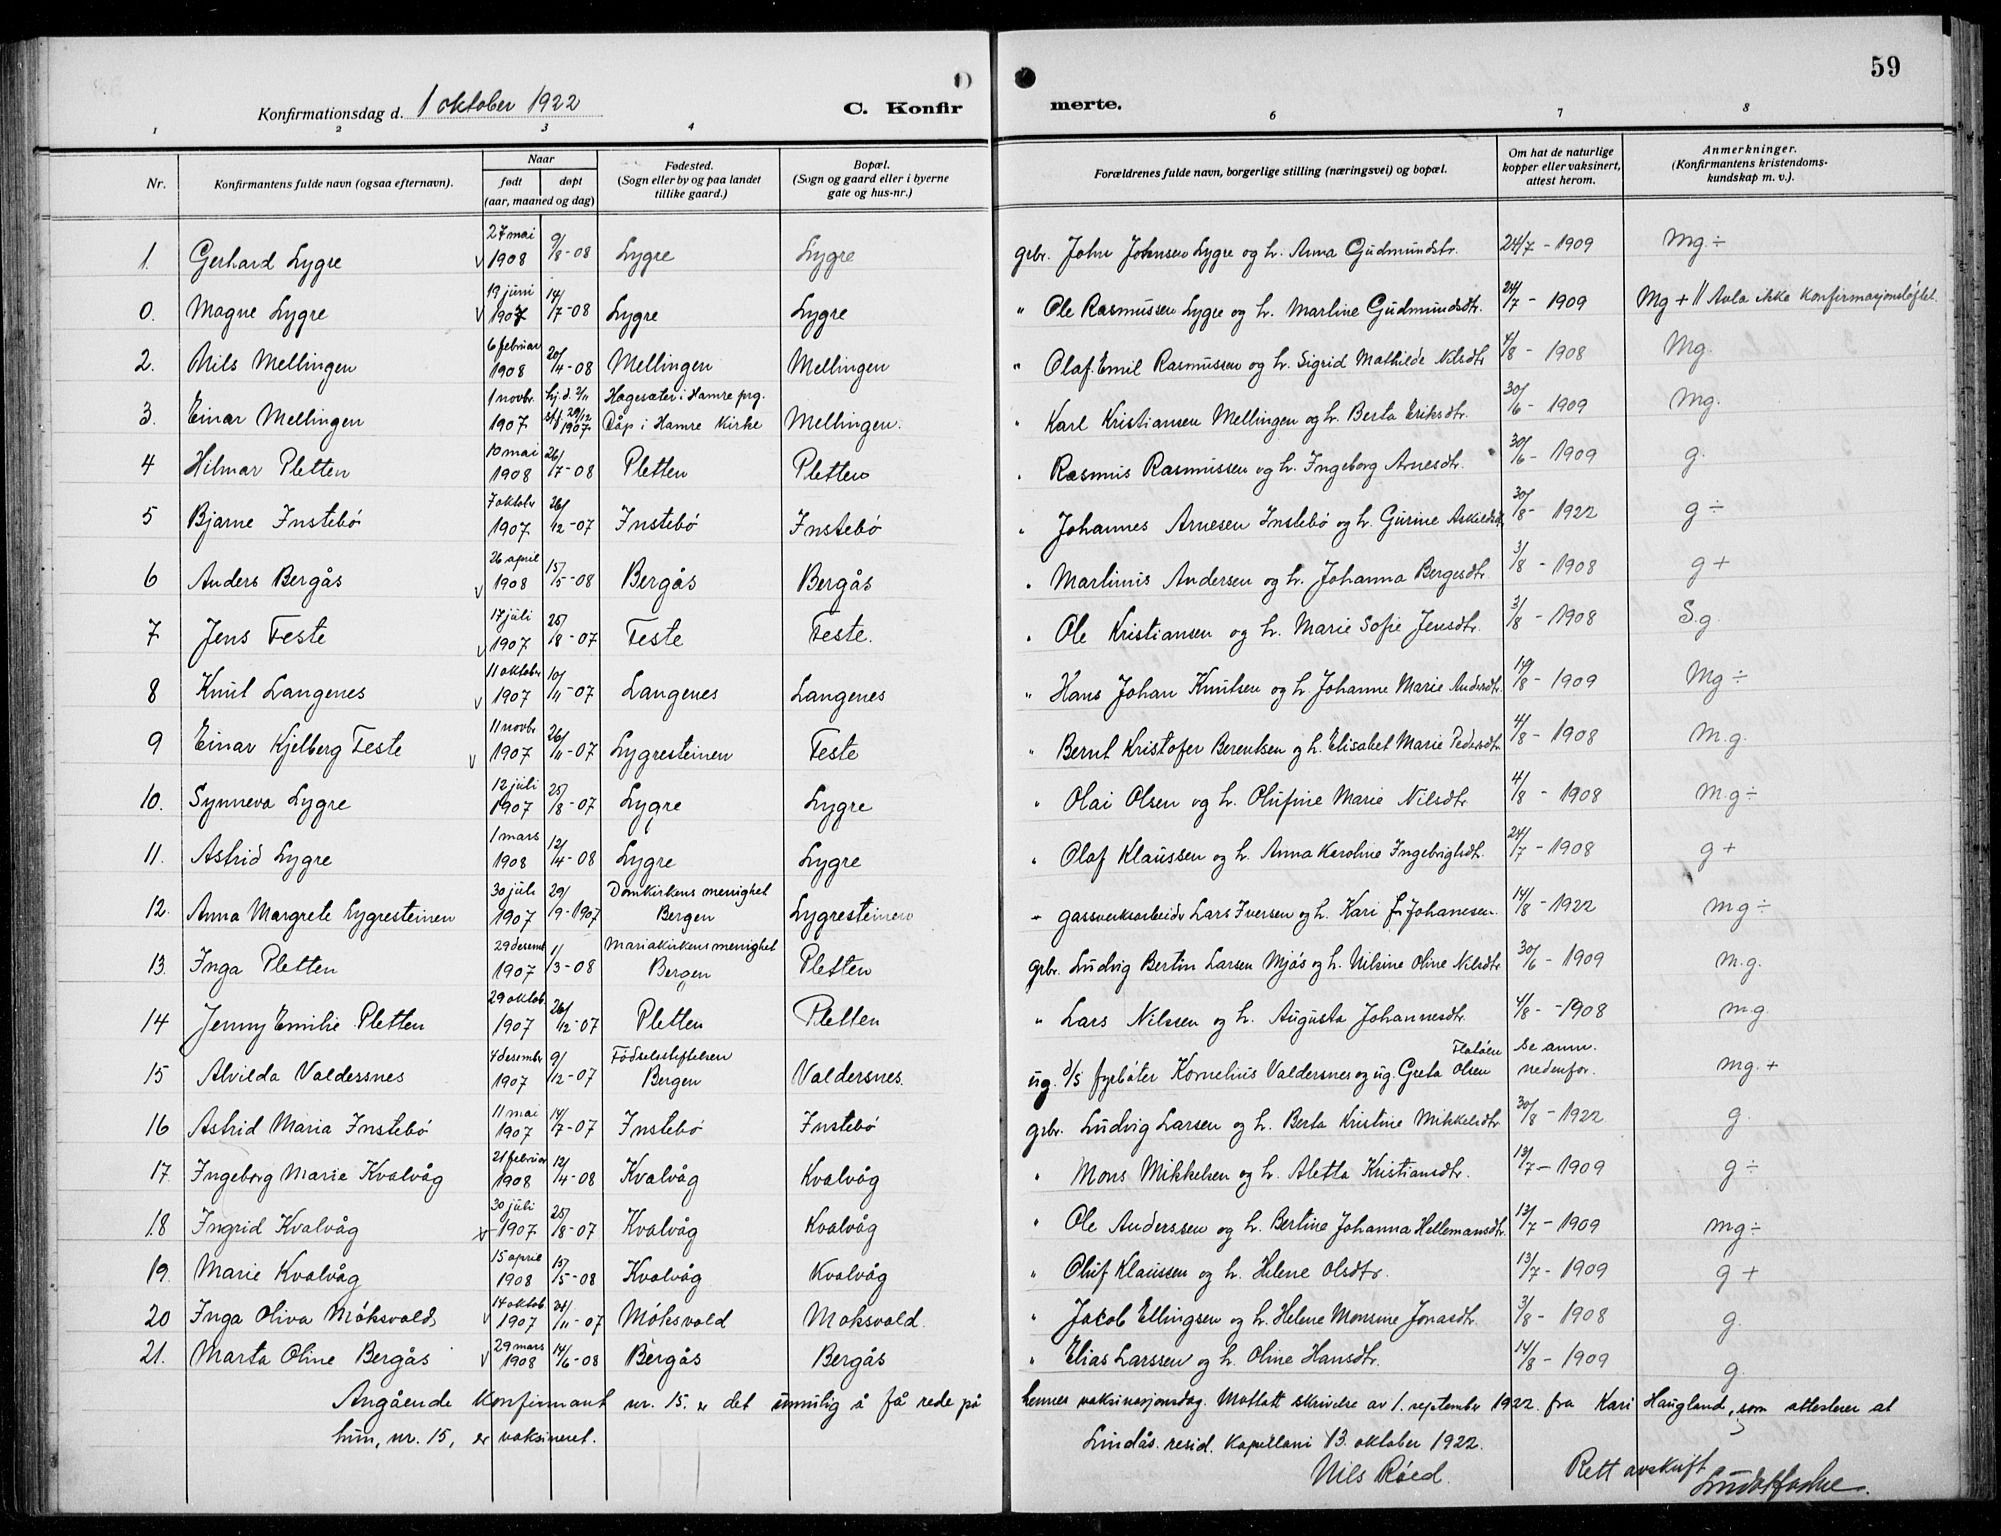 59
Konfirmationsdag d. 1 oktober 1922
C. Konfirmerte.
1 2 3 4 6 7 8
Nr. | Konfirmantens fulde navn (ogsaa efternavn). | Naar født døpt (aar, maaned og dag) | Fødested. (Sogn eller by og paa landet tillike gaard.) | Bopæl. (Sogn og gaard eller i byerne gate og hus-nr.) | Forældrenes fulde navn, borgerlige stilling (næringsvei) og bopæl. | Om hat de naturlige kopper eller vaksinert, attest herom. | Anmerkninger. (Konfirmantens kristendomskundskap m. v.).
1. Gerhard Lygre | 27 mai 1908 | 9/8-08 | Lygre | Lygre | gbr. John Johnsen Lygre og h. Anna Gudmundstr. | 24/7 - 1909 | Mg ÷
0. Magne Lygre | 19 juni 1907 | 14/7-08 | Lygre | Lygre | " Ole Rasmussen Lygre og h. Martine Gudmundsdtr. | 24/7 - 1909 | Mg + || Avla ikke konfirmasjonsløftet.
2. Nils Mellingen | 6 februar 1908 | 20/4-08 | Mellingen | Mellingen | " Olaf Emil Rasmussen og h. Sigrid Mathilde Nilsdtr | 4/8 - 1908 | Mg.
3. Einar Mellingen | 1 novbr. 1907 | hj.d. 2/11 st.f. 29/12 1907 | Hagesæter i Hamre prg. Dåp i Hamre Kirke | Mellingen. | " Karl Kristiansen Mellingen og h. Berta Eriksdtr. | 30/6 - 1909 | Mg.
4 Hilmar Pletten | 10 mai 1908 | 26/7-08 | Pletten | Pletten | " Rasmus Rasmussen og h. Ingeborg Arnesdtr. | 30/6 - 1909 | g.
5 Bjarne Instebø | 7 oktober 1907 | 26/12-07 | Instebø | Instebø | " Johannes Arnesen Instebø og h. Gurine Askeldsdtr | 30/8 - 1922 | g ÷
6 Anders Bergås | 26 april 1908 | 15/5-08 | Bergås | Bergås | " Martinus Andersen og h. Johanna Bergesdtr | 3/8 - 1908 | g +
7 Jens Feste | 17 juli 1907 | 25/8-07 | Feste | Feste. | " Ole Kristiansen og h. Marie Sofie Jensdtr. | 3/8 - 1908 | S.g.
8 Knut Langenes | 11 oktober 1907 | 10/11-07 | Langenes | Langenes | " Hans Johan Knutsen og h Johanne Marie Andersdtr. | 14/8 - 1909 | Mg ÷
9 Einar Kjelberg Feste | 11 novbr 1907 | 26/11-07 | Lygresteinen | Feste | " Bernt Kristofer Berentsen og h. Elisabet Marie Pedersdtr | 4/8 - 1908 | M.g.
10. Synneva Lygre | 12 juli 1907 | 25/8-07 | Lygre | Lygre | " Olai Olsen og h. Olufine Marie Nilsdtr. | 4/8 - 1908 | M.g ÷
11. Astrid Lygre | 1 mars 1908 | 12/4-08 | Lygre | Lygre | " Olaf Klaussen og h. Anna Karoline Ingebrigtsdtr. | 24/7 - 1908 | g +
12. Anna Margrete Lygresteinen | 30 juli 1907 | 29/9-1907 | Domkirkens menighet Bergen | Lygresteinen | " gassverksarbeider Lars Iversen og h. Kari f. Johanesen. | 14/8 - 1922 | mg ÷
13. Inga Pletten | 29 desemb 1907 | 1/3-08 | Mariakirkens menighet Bergen | Pletten | gbr. Ludvig Bertin Larsen Mjøs og h. Nilsine Oline Nilsdtr | 30/6 - 1909 | m.g.
14 Jenny Emilie Pletten | 29 oktob. 1907 | 26/12-07 | Pletten | Pletten | " Lars Nilssen og h. Augusta Johannesdtr. | 4/8 - 1908 | m.g
15 Alvilda Valdersnes | 4 desembr 1907 | 9/12-07 | Fødselsstiftelsen Bergen | Valdersnes. | ug. d/s fyrbøter Kornelius Valdersnes og ug. Greta Olsen Flatøen | se anm. nedenfor. | mg. +
16 Astrid Maria Instebø | 11 mai 1907 | 14/7-07 | Instebø | Instebø | gbr. Ludvig Larsen og h. Berta Kristine Mikkelsdtr | 30/8 - 1922 | g.
17. Ingeborg Marie Kvalvåg | 21 februar 1908 | 12/4-08 | Kvalvåg | Kvalvåg | " Mons Mikkelsen og h. Aletta Kristiansdtr. | 13/7 - 1909 | g ÷
18. Ingrid Kvalvåg | 30 juli 1907 | 25/8-07 | Kvalvåg | Kvalvåg | " Ole Anderssen og h. Bertine Johanna Hellemansdtr. | 13/7 - 1909 | mg ÷
19. Marie Kvalvåg | 15 april 1908 | 13/5-08 | Kvalvåg | Kvalvåg | " Oluf Klaussen og h. Helene Olsdtr. | 13/7 - 1909 | g +
20 Inga Oliva Möksvold | 14 oktob. 1907 | 24/11-07 | Möksvold | Moksvold. | " Jakob Ellingsen og h. Helene Monsine Jonasdtr. | 3/8 - 1908 | g.
21. Marta Oline Bergås | 29 mars 1908 | 14/6-08 | Bergås | Bergås | " Elias Larssen og h. Oline Hansdtr. | 14/8 - 1909 | g.
Angående konfirmant nr. 15. er det umulig å få rede på hennes vaksinasjonsdag. Mottatt skrivelse av 1. september 1922 fra Kari Haugland, som attesterer at
hun, nr. 15, er vaksineret.
Lindås resid. kapellani 13. oktober 1922.
Nils Røed.
Rett avskrift